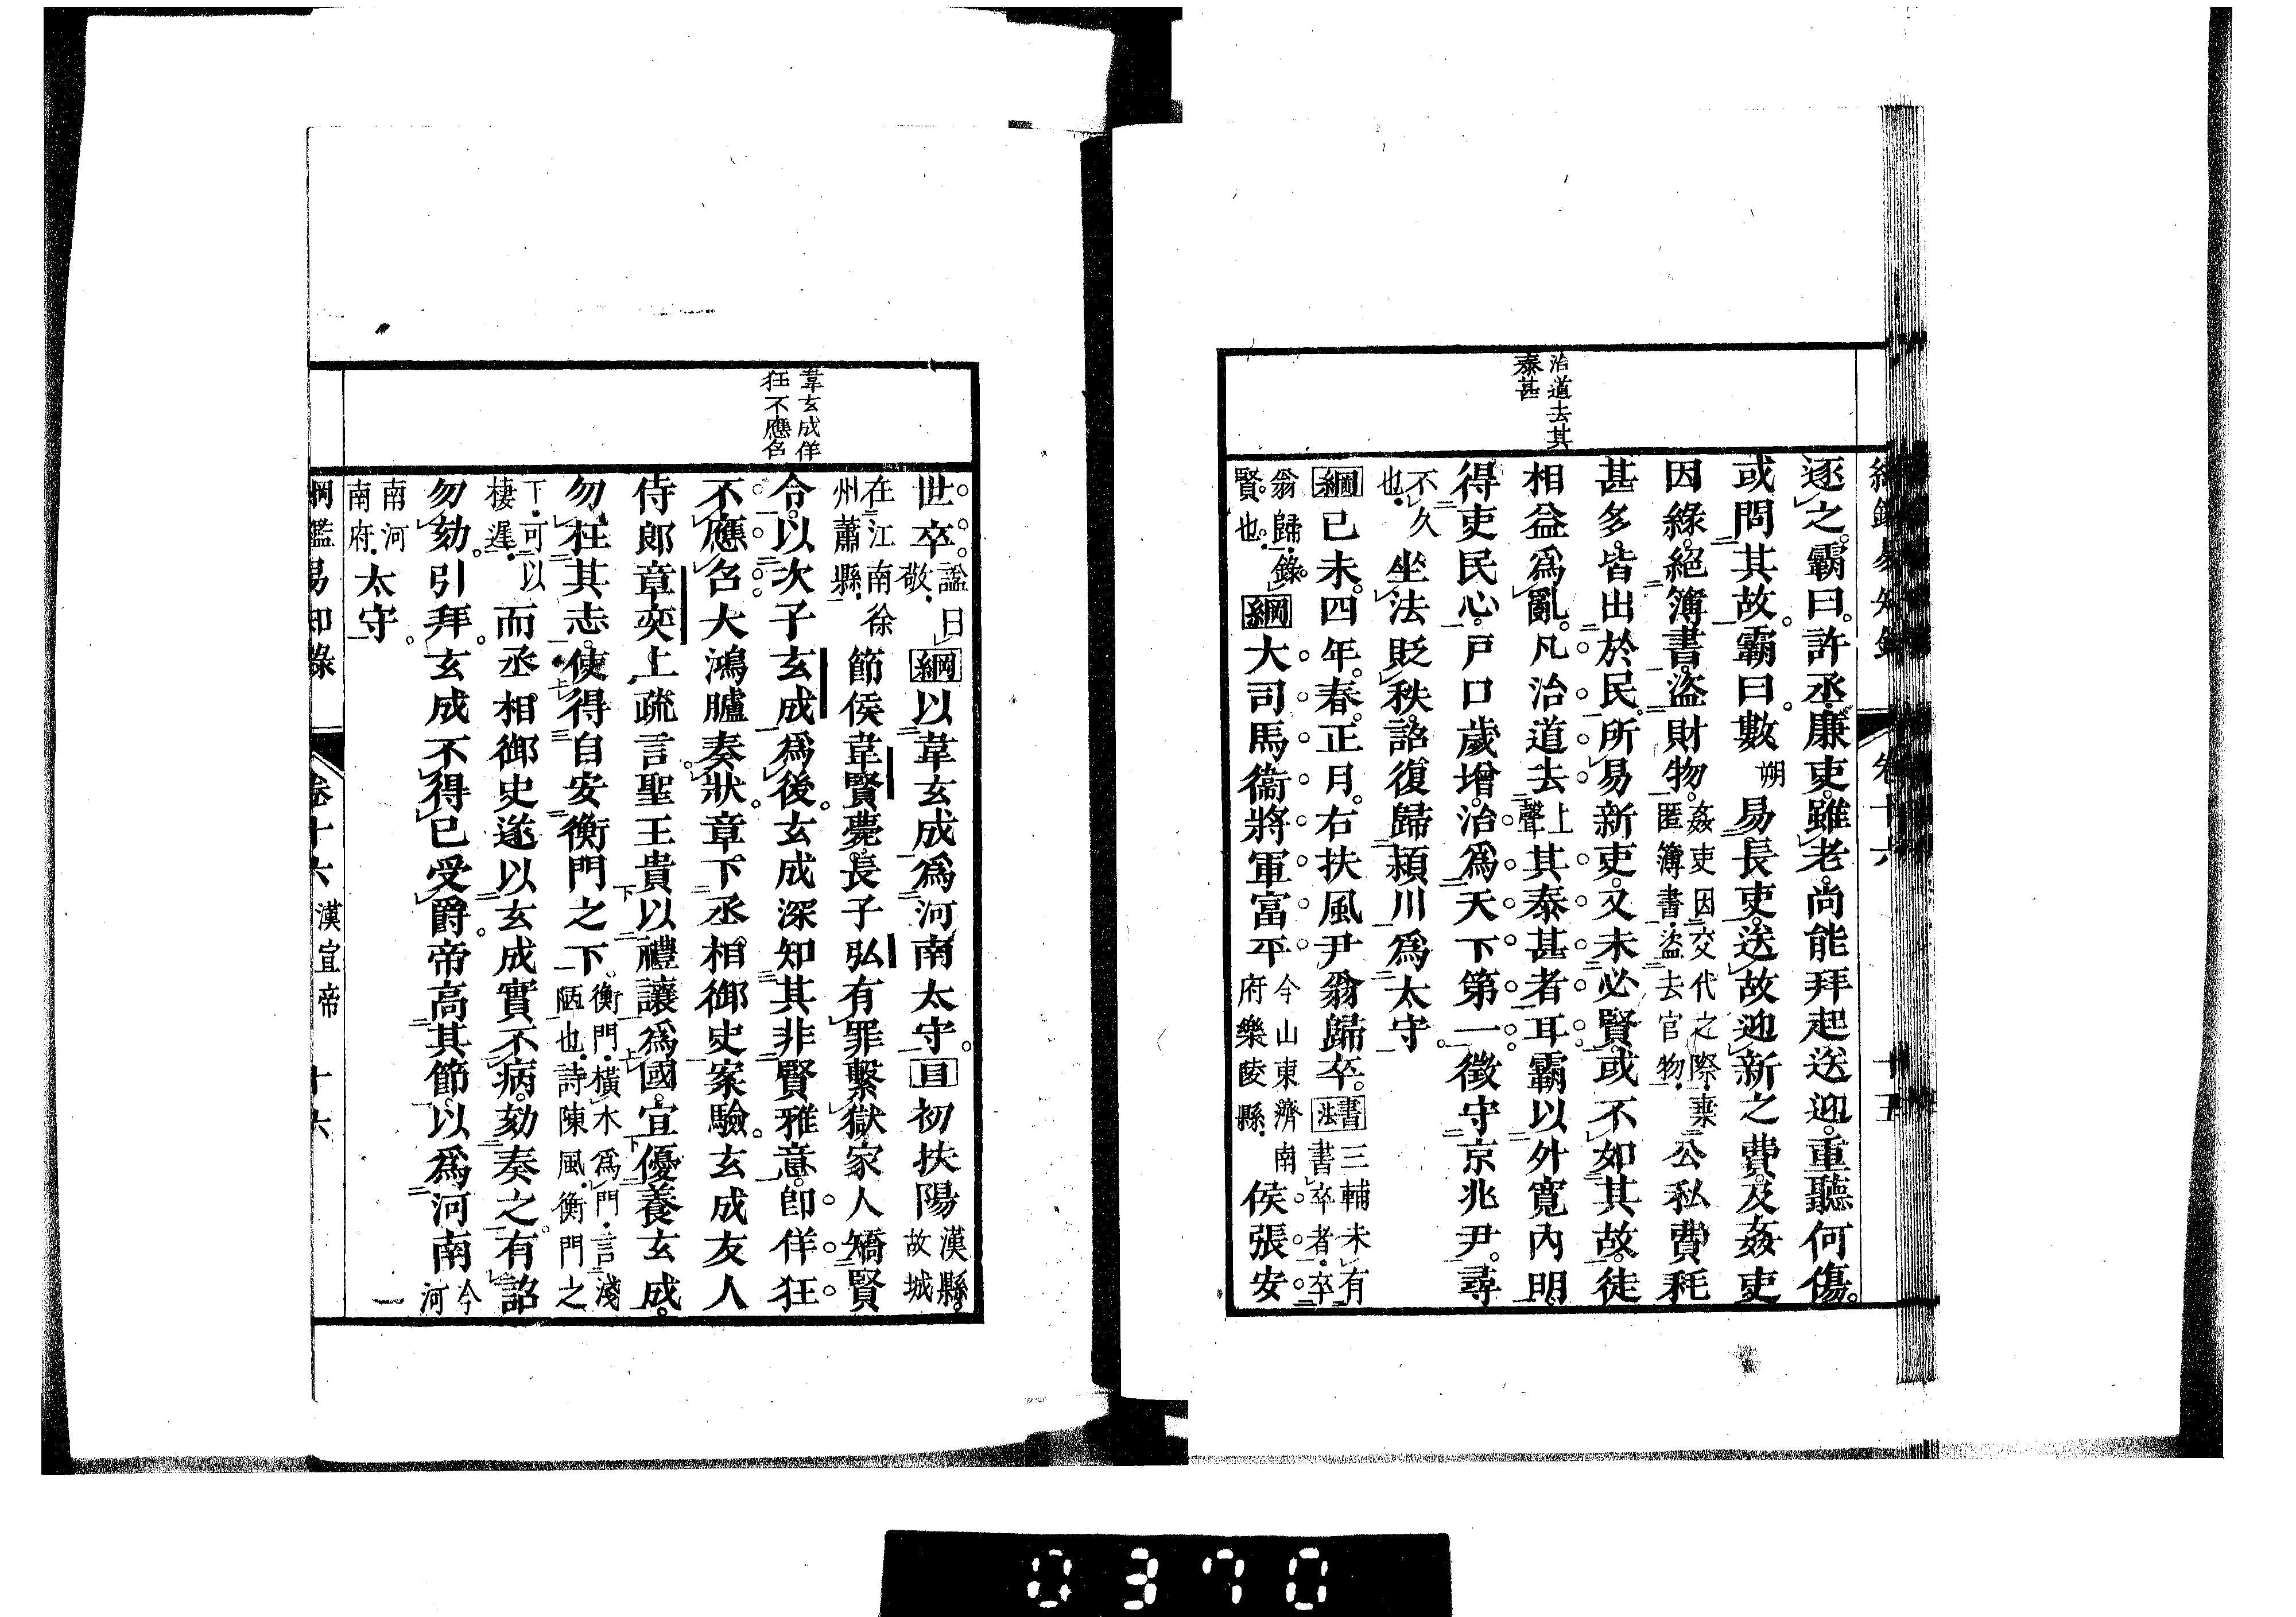 治道去其
泰甚
逐之。霸曰。許丞廉吏。雖老。尚能拜起送迎。重聽何傷。
或問其故。霸曰。數朔易長吏。送故迎新之費。及姦吏
因緣絕簿書。盜財物。姦吏因交代之際。棄匿簿書。盜去官物。公私費耗
甚多。皆出於民。所易新吏。又未必賢。或不如其故。徒
相益爲亂。凡治道去上聲其泰甚者耳。霸以外寬內明。
得吏民心。戶口歲增。治爲天下第一。徵守京兆尹。尋
不久也。坐法貶秩。詔復歸潁川爲太守。
綱己未。四年。春。正月。右扶風尹翁歸卒。書法書三輔未有書卒者。卒
翁歸。錄賢也。綱大司馬衞將軍富平今山東濟南府樂陵縣。侯張安
綱鑑易知錄 卷十六 十五
韋玄成佯
狂不應召
世卒。謚曰敬。綱以韋玄成爲河南太守。目初扶陽漢縣。故城
在江南徐州蕭縣。節侯韋賢薨。長子弘有罪繫獄。家人矯賢
令。以次子玄成爲後。玄成深知其非賢雅意。卽佯狂
不應召。大鴻臚奏狀。章下丞相御史案驗。玄成友人
侍郎章奕上疏言聖王貴以禮讓爲國。宜優養玄成。
勿枉其志。使得自安衡門之下。衡門。橫木爲門。言淺陋也。詩陳風。衡門之
下。可以棲遲。而丞相御史遂以玄成實不病。劾奏之。有詔
勿劾。引拜。玄成不得已受爵。帝高其節。以爲河南今河
南河南府。太守。
綱鑑易知錄 卷十六 漢宣帝 十六
0370